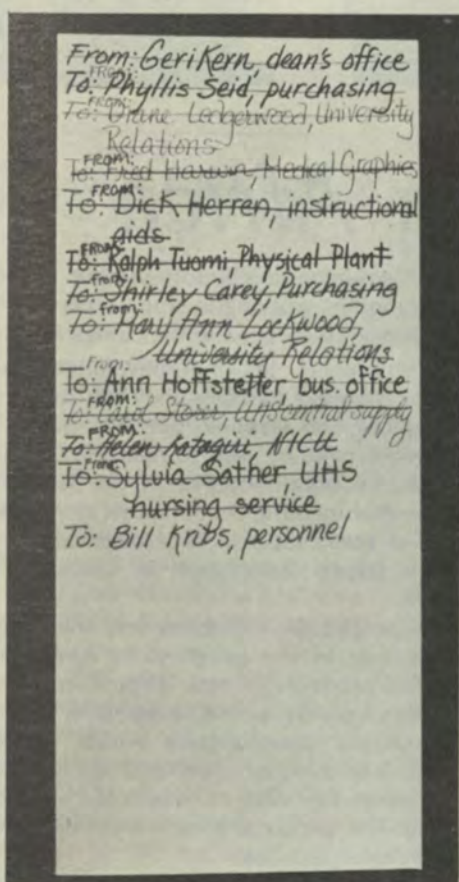 From: Geri Kern, dean's office
FROM:
To: Phyllis Seid, purchasing
FROM:
To: Diane Ledgerwood, University
Relations
FROM:
To: Fred Harwin, Medical Graphics
FROM:
To: Dick Herren, instructional
aids
FROM:
To: Ralph Tuomi, Physical Plant
from:
To: Shirley Carey, Purchasing
from:
To: Mary Ann Lockwood,
University Relations
From:
To: Ann Hoffstetter, bus. office
FROM:
To: Carol Storer, UHS central supply
FROM:
To: Helen Katagiri, NICU
From:
To: Sylvia Sather, UHS
nursing service
To: Bill Knibs, personnel